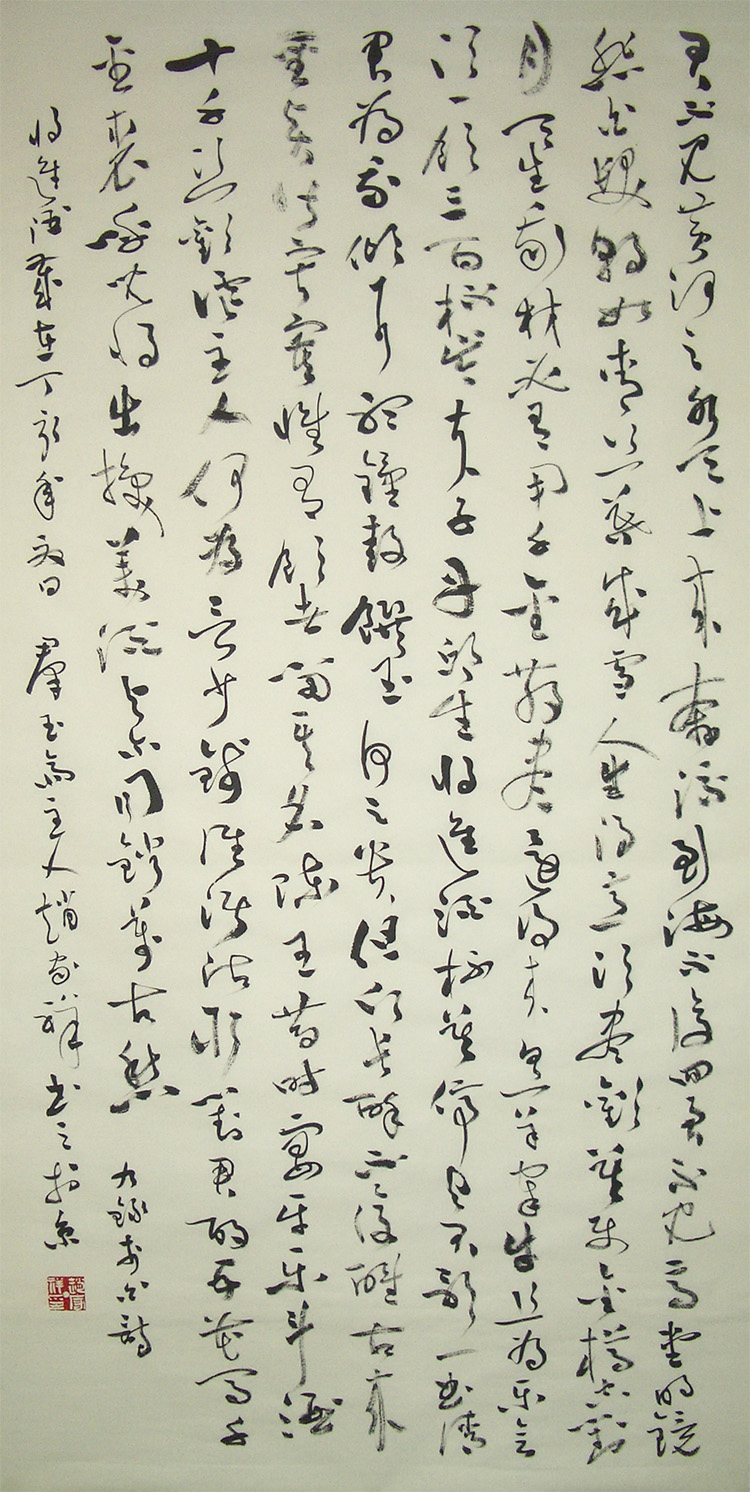 君不見黃河之水天上來奔流到海不復回君不見高堂明鏡
悲白髮朝如青絲暮成雪人生得意須盡歡莫使金樽空對
月天生我材必有用千金散盡還復來烹羊宰牛且為樂會
須一飲三百杯岑夫子丹邱生將進酒杯莫停與君歌一曲請
君為我傾耳聽鐘鼓饌玉何足貴但願長醉不復醒古來
聖賢皆寂寞惟有飲者留其名陳王昔時宴平樂斗酒
十千恣歡謔主人何為言少錢徑須沽取對君酌五花馬千
金裘呼兒將出換美酒與爾同銷萬古愁 右錄李白詩
將進酒歲在丁亥年夏日 羣玉齋主人趙家祥書之於京